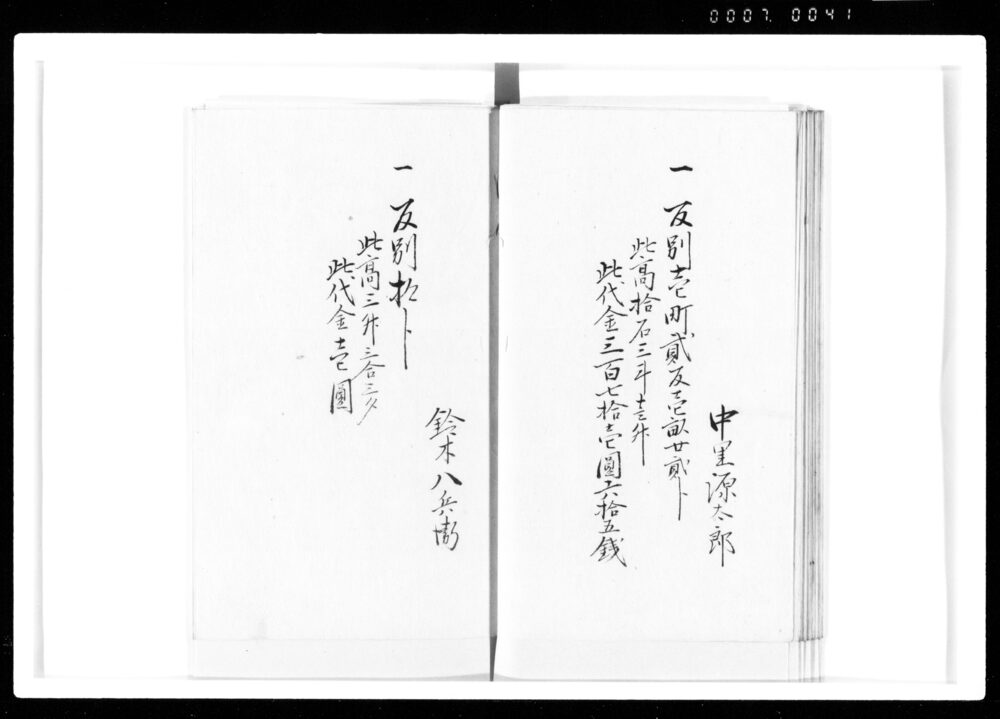 0007. 0041
中里源太郎
一反別壱町貳反壱畝廿貳卜
此高拾石三斗壱升
此代金三百七拾壱圓六拾五銭
鈴木八兵衛
一反別拾卜
此高三升三合三夕
此代金壱圓